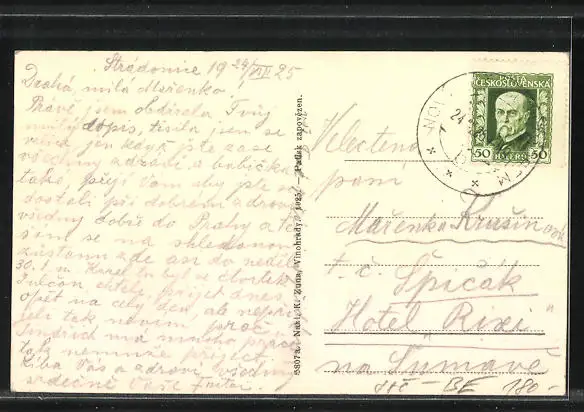 Strádonice 19 24/VII 25
Drahá, milá Mařenko!
Právě jsem obdržela Tvůj
milý dopis, těšila jsem se
velice jen když jste zase
všichni zdraví a babička
také, přeji Vám aby jste n
dostali při dobrém zdraví
všichni dobře do Prahy a tě
ším se na shledanou
zůstanu zde asi do neděle
30. t. m. Karel
chtěli přijet dnes
opět na celý den, ale nepři
jeli tak nevím proč
Jindřich má mnoho práce
tak nemůže přijeti
líbá Vás a zdraví všechny
srdečně Vaše
5807a. Nakl. K. Zuna, Vinohrady, 1925. — Patisk zapovězen.
POŠTA
ČESKOSLOVENSKÁ
50 HALÉŘŮ 50
Velectěná
paní
Mařenka Krušinová
t. č. Špičák
"Hotel Rixi"
na Šumavě
BE 180-